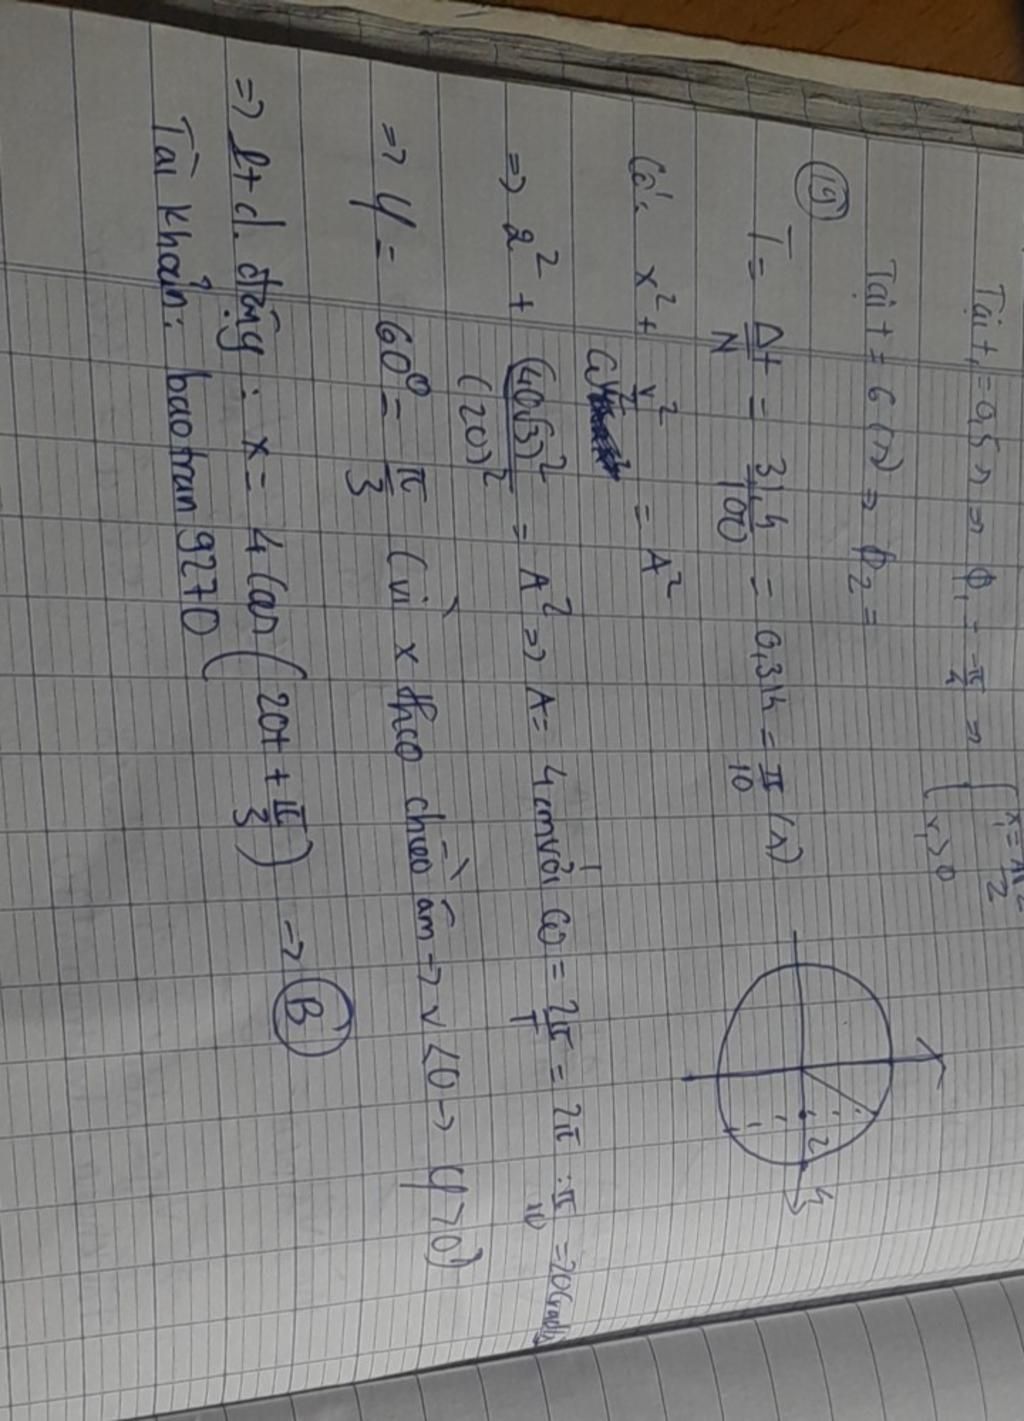 Tại t₁ = 0,5 s => Φ₁ = -π/4 => { x₁ = A√2/2
v₁ > 0
Tại t = 6 (s) => Φ₂ =
(19)
T = Δt/N = 31,4/100 = 0,314 = π/10 (s)
Có: x² + v²/ω² = A²
=> 2² + (40√3)²/(20)² = A² => A = 4 cm với ω = 2π/T = 2π : π/10 = 20 (rad/s)
=> φ = 60⁰ = π/3 (vì x theo chiều âm → v < 0 → φ > 0)
=> pt d. động : x = 4 cos (20t + π/3) → (B)
Tài khoản: baotran9270
4
2